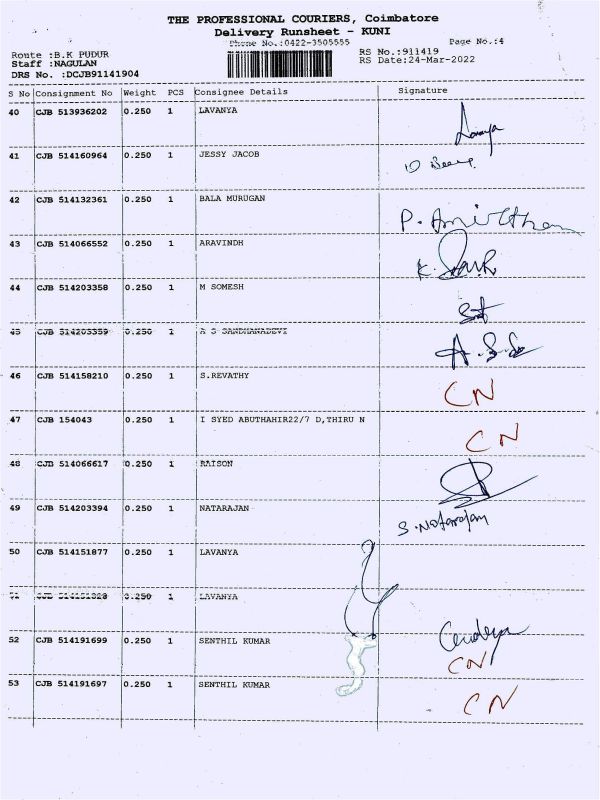 THE PROFESSIONAL COURIERS, Coimbatore
Delivery Runsheet - KUNI
Phone No.:0422-3505555 Page No.:4
Route :B.K PUDUR RS No.:911419
Staff :NAGULAN RS Date:24-Mar-2022
DRS No. :DCJB91141904
S No Consignment No Weight PCS Consignee Details Signature
40 CJB 513936202 0.250 1 LAVANYA
41 CJB 514160964 0.250 1 JESSY JACOB
42 CJB 514132361 0.250 1 BALA MURUGAN
43 CJB 514066552 0.250 1 ARAVINDH
44 CJB 514203358 0.250 1 M SOMESH
45 CJB 514203359 0.250 1 A S SANDHANADEVI
46 CJB 514158210 0.250 1 S.REVATHY CN
47 CJB 154043 0.250 1 I SYED ABUTHAHIR22/7 D,THIRU N CN
48 CJB 514066617 0.250 1 RAISON
49 CJB 514203394 0.250 1 NATARAJAN S.Natarajan
50 CJB 514151877 0.250 1 LAVANYA
51 CJB 0.250 1 LAVANYA
52 CJB 514191699 0.250 1 SENTHIL KUMAR CN
53 CJB 514191697 0.250 1 SENTHIL KUMAR CN